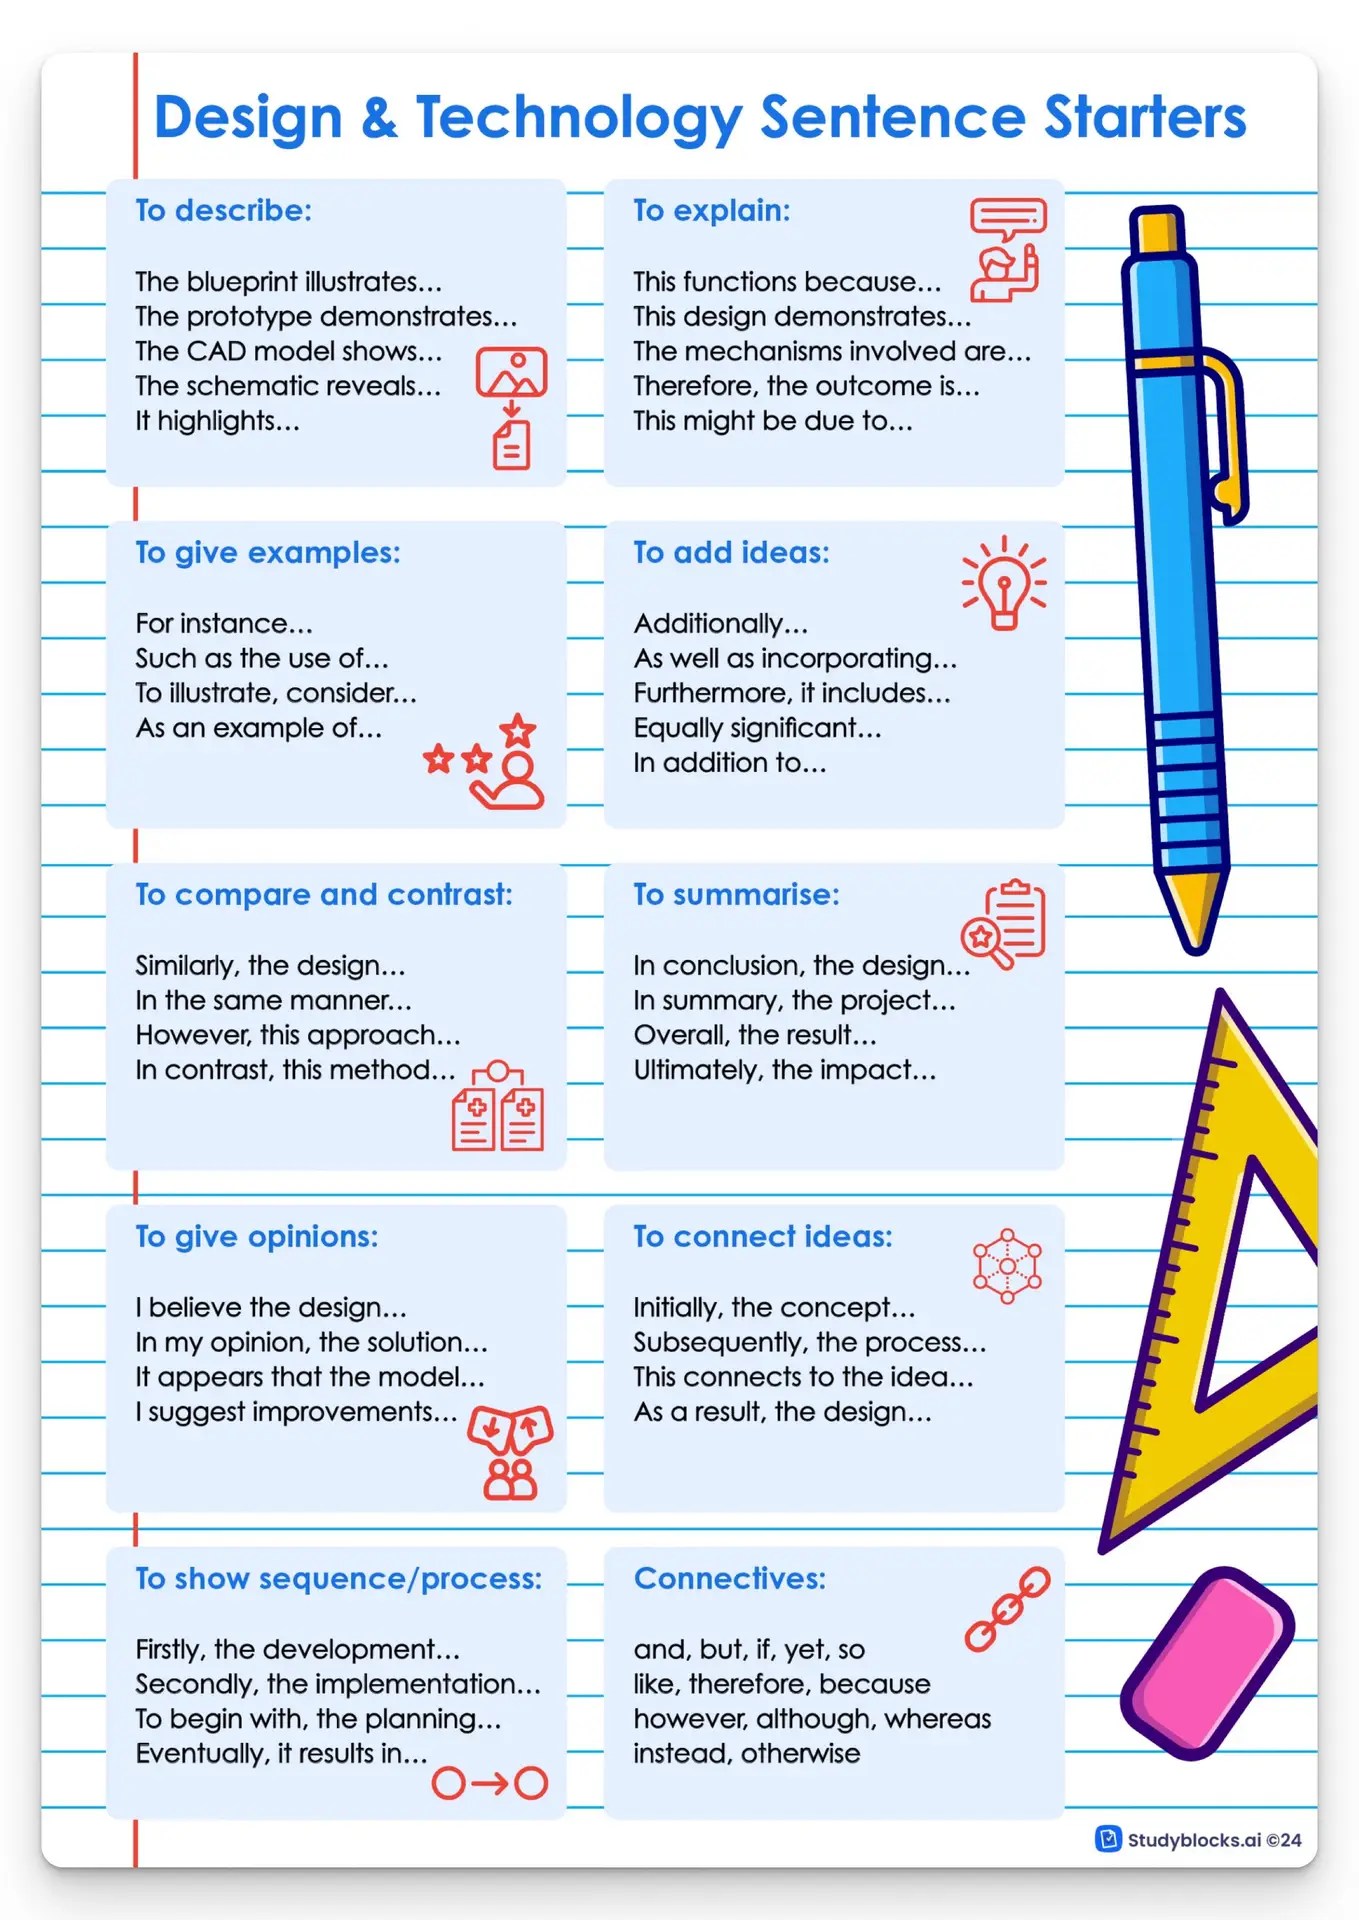 Design & Technology Sentence Starters
To describe:
The blueprint illustrates...
The prototype demonstrates...
The CAD model shows...
The schematic reveals...
It highlights...
To explain:
This functions because...
This design demonstrates...
The mechanisms involved are...
Therefore, the outcome is...
This might be due to...
To give examples:
For instance...
Such as the use of...
To illustrate, consider...
As an example of...
To add ideas:
Additionally...
As well as incorporating...
Furthermore, it includes...
Equally significant...
In addition to...
To compare and contrast:
Similarly, the design...
In the same manner...
However, this approach...
In contrast, this method...
To summarise:
In conclusion, the design...
In summary, the project...
Overall, the result...
Ultimately, the impact...
To give opinions:
I believe the design...
In my opinion, the solution...
It appears that the model...
I suggest improvements...
To connect ideas:
Initially, the concept...
Subsequently, the process...
This connects to the idea...
As a result, the design...
To show sequence/process:
Firstly, the development...
Secondly, the implementation...
To begin with, the planning...
Eventually, it results in...
Connectives:
and, but, if, yet, so
like, therefore, because
however, although, whereas
instead, otherwise
Studyblocks.ai ©24